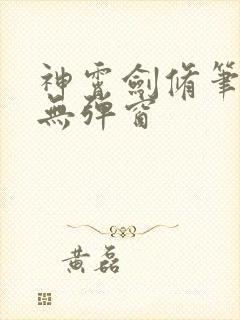 神霄劍脩筆
無彈窗
黃磊